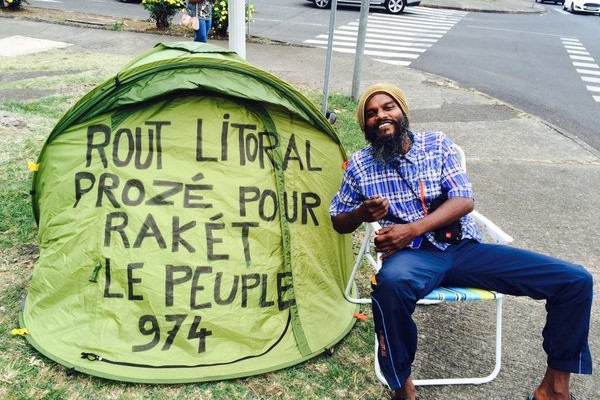 ROUT LITORAL
PROZÉ POUR
RAKÉT
LE PEUPLE
974